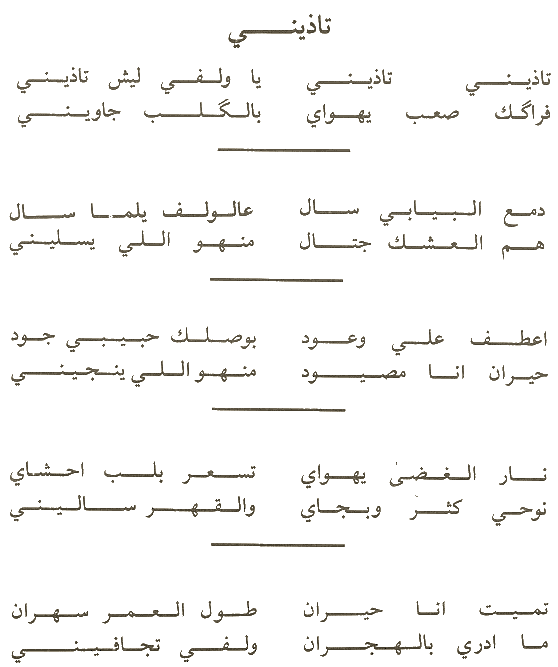 تاذيني
تاذيني تاذيني يا ولفي ليش تاذيني
فراگك صعب يهواي بالگلب جاويني
دمع البيابي سال عالولف يلما سال
هم العشك جتال منهو اللي يسليني
اعطف علي وعود بوصلك حبيبي جود
حيران انا مصيود منهو اللي ينجيني
نار الغضى يهواي تسعر بلب احشاي
نوحي كثر وبجاي والقهر ساليني
تميت انا حيران طول العمر سهران
ما ادري بالهجران ولفي تجافيني